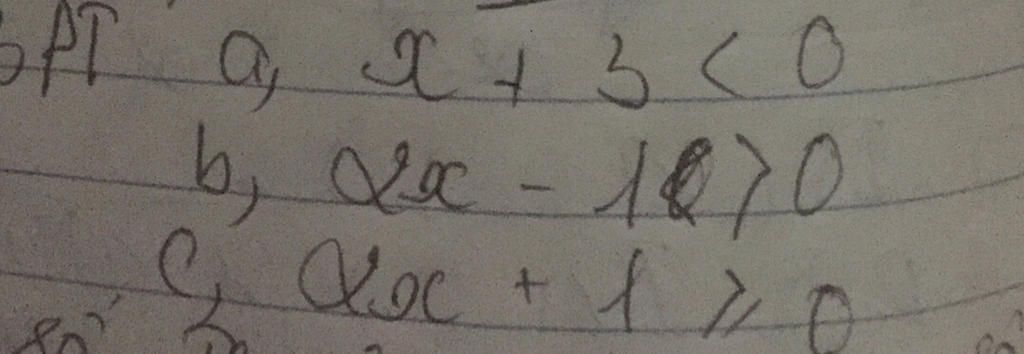 PT a, x + 3 < 0
b, 2x - 10 > 0
c, 2x + 1 ≥ 0